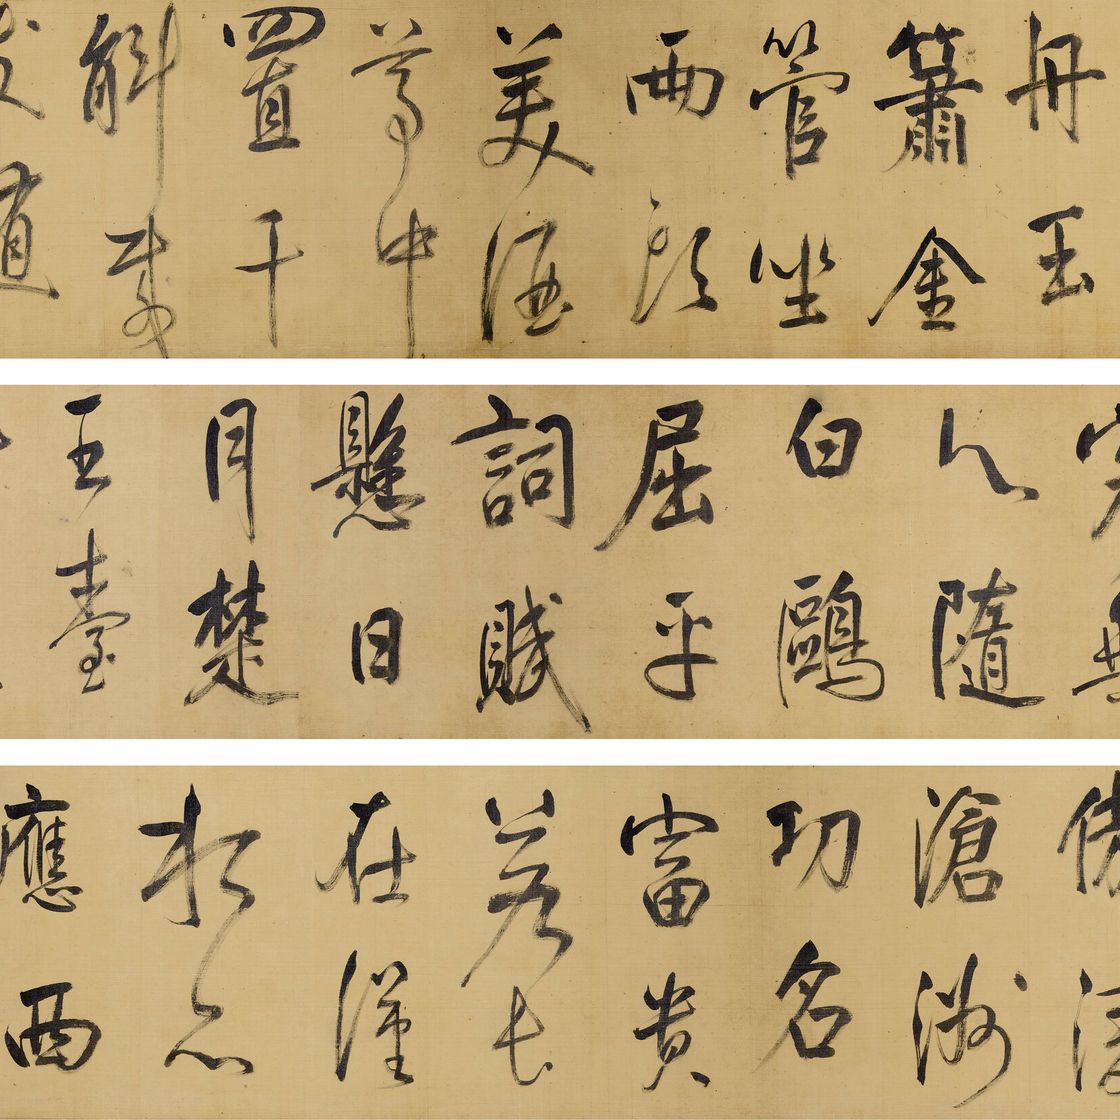 舟玉
簫金
管坐
兩頭
美酒
尊中
置千
斛載
妓隨
客無
心隨
白鷗
屈平
詞賦
懸日
月楚
王臺
傲凌
滄洲
功名
富貴
若長
在漢
水亦
應西